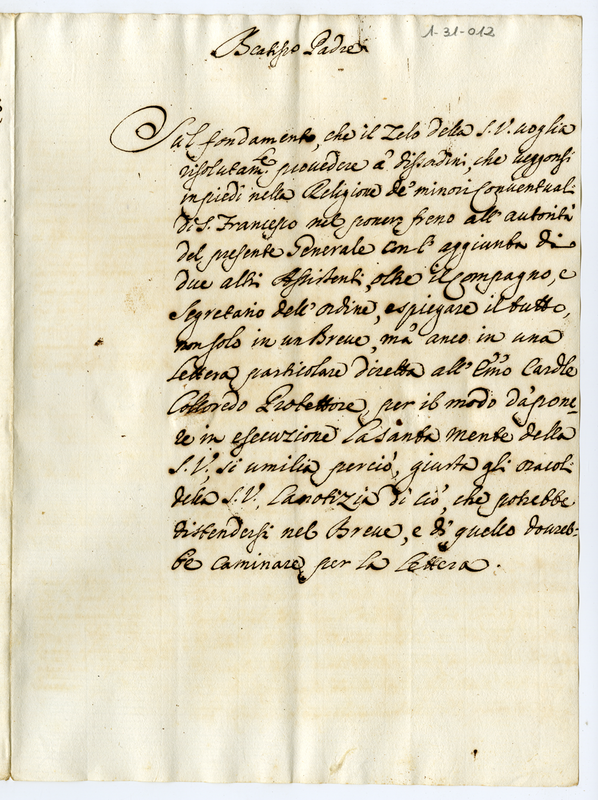 1-31-012
Beatis.o Padre
Sul fondamento, che il Zelo della S. V. uoglia
risolutam.te prouedere a' disordini, che ueggonsi
in piedi nella Religione de' minori Conuentuali
di S. Francesco nel ponere freno all' autorità
del presente Generale con l' aggiunta di
due altri Assistenti, oltre il Compagno, e
Segretario dell' ordine, e spiegare il tutto,
non solo in un Breue, mà anco in una
lettera particolare diretta all' Em̃o Cardle
Colloredo Protettore, per il modo da pone-
re in esecuzione la santa mente della
S. V., si umilia perciò, giusta gli oracoli
della S. V. la notizia di ciò, che potrebbe
distendersi nel Breue, e di quello doureb-
be caminare per la lettera.